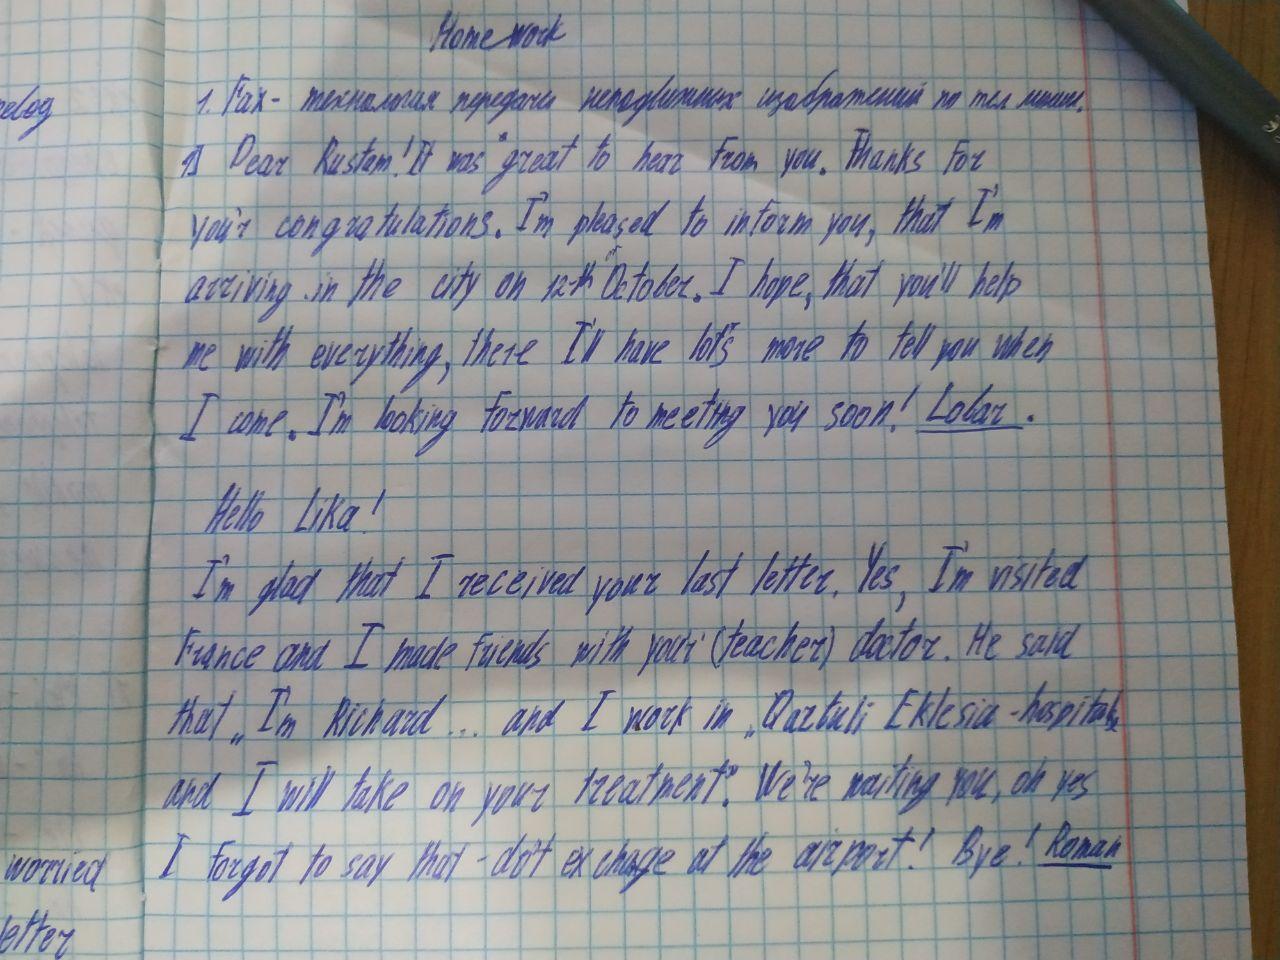 Home work
1. Fax - технология передачи неподвижных изображений по тел линии.
1) Dear Rustam! It was great to hear from you. Thanks for
your congratulations. I'm pleased to inform you, that I'm
arriving in the city on 12-th of October. I hope, that you'll help
me with everything, there I'll have lots more to tell you when
I come. I'm looking forward to meeting you soon! Lobar.
Hello Lika!
I'm glad that I received your last letter. Yes, I'm visited
France and I made friends with your (teacher) doctor. He said
that „I'm Richard... and I work in „Qartuli Eklesia-hospital"
and I will take on your treatment". We're waiting you, oh yes
I forgot to say that - do't exchage at the airport! Bye! Roman
worried
letter